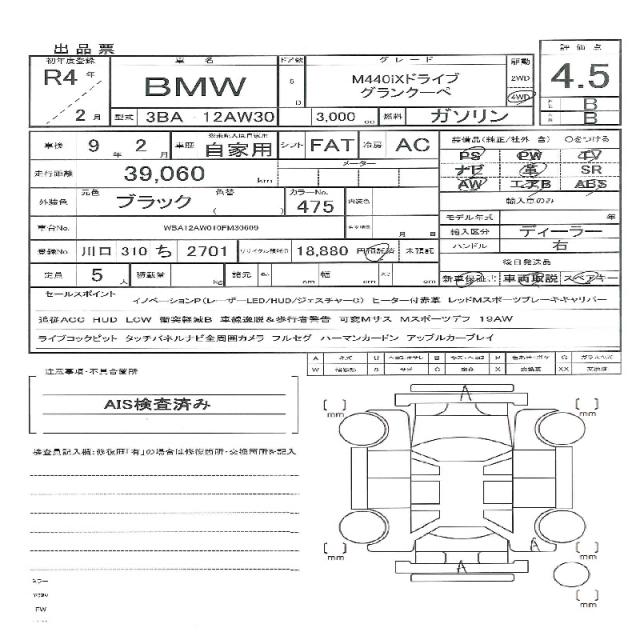 出品票
初年度登録 車名 ドア数 グレード 駆動 評価点
R4年 2月 BMW 5 D M440iXドライブ グランクーペ 2WD 4WD 4.5
型式 3BA - 12AW30 3,000 cc 燃料 ガソリン B B
車検 9年 2月 車歴 自家用 シフト FAT 冷房 AC 装備品(純正/社外 含) ○をつける
PS PW TV
走行距離 39,060 km メーター ナビ 革 SR
AW エアB ABS
外装色 元色 ブラック 色替 ( ) カラーNo. 475 内装色 輸入車のみ
モデル年式 年
車台No. WBA12AW010FM30609 月 日 輸入区分 ディーラー
登録No. 川口 310 ち 2701 リサイクル預託金 18,880 円 預託済 未預託 ハンドル 右
後日発送品
定員 5人 積載量 kg 諸元 長 cm 幅 cm 高 cm 新車保証書 車両取説 スペアキー
セールスポイント イノベーションP(レーザーLED/HUD/ジェスチャーC) ヒーター付赤革 レッドMスポーツブレーキキャリパー
追従ACC HUD LCW 衝突軽減B 車線逸脱&歩行者警告 可変Mサス Mスポーツデフ 19AW
ライブコックピット タッチパネルナビ全周囲カメラ フルセグ ハーマンカードン アップルカープレイ
A キズ U B P G
W S C X XX
注意事項・不具合箇所
AIS検査済み
検査員記入欄:修復歴「有」の場合は修復箇所・交換箇所を記入
A
[ ] mm [ ] mm
A
A
[ ] mm [ ] mm
[ ] mm